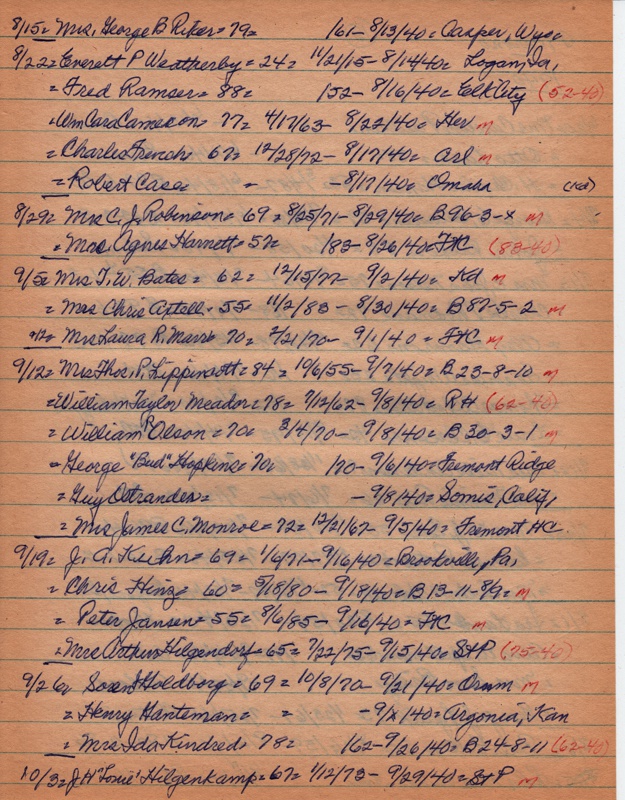 8/15 = Mrs, George B Riker = 79 = 161 - 8/13/40 = Casper, Wyo
8/22 = Everett P Weatherby = 24 = 11/21/15 - 8/14/40 = Logan, Ia,
= Fred Ramser = 88 = 152 - 8/16/40 = Elk City (52-40)
= Wm Cara Cameron = 77 = 4/17/63 - 8/22/40 = Her m
= Charles French = 67 = 12/28/72 - 8/17/40 = Arl m
= Robert Case = = - 8/17/40 = Omaha (Kd)
8/29 = Mrs C. J. Robinson = 69 = 8/25/71 - 8/29/40 = B 96-3-x m
= Mrs, Agnes Harnett = 57 = 183 - 8/26/40 = FHC (83-40)
9/5 = Mrs T. W. Bates = 62 = 12/15/77 - 9/2/40 = Kd m
= Mrs Chris = 55 = 11/2/83 - 8/30/40 = B 87-5-2 m
9/12 = Mrs Laura R. Marrs 70 = 2/21/70 - 9/1/40 = FHC m
9/12 = Mrs Thos. P. Lippincott = 84 = 10/6/55 - 9/7/40 = B 23-8-10 m
= William Taylor Meador = 78 = 7/12/62 - 9/8/40 = RH (62-40)
= William R Olson = 70 = 3/4/70 - 9/8/40 = B 30-3-1 m
= George "Bud" Hopkins = 70 = 170 - 9/6/40 = Fremont Ridge
= Guy Ostrander = - 9/8/40 = Somis, Calif,
= Mrs James C, Monroe = 72 = 12/21/67 - 9/5/40 = Fremont HC
9/19 = J. A. Kuhn = 69 = 1/6/71 - 9/16/40 = Brookville, Pa,
= Chris Hinz = 60 = 5/18/80 - 9/18/40 = B 13-11-8/9 = m
= Peter Jansen = 55 = 8/6/85 - 9/16/40 = FHC m
= Mrs Arthur Hilgendorf = 65 = 7/22/75 - 9/15/40 = StP (75-40)
9/26 = Soren J Holdborg = 69 = 10/8/70 - 9/21/40 = Orum m
= Henry Hanteman = = - 9/x/40 = Argonia, Kan
= Mrs Ida Kindred = 78 = 162 - 9/26/40 = B 24-8-11 (62-40)
10/3 = J H "Tonie" Hilgenkamp = 67 = 1/12/73 - 9/29/40 = StP m